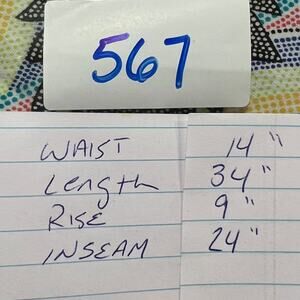 567
WAIST 14"
Length 34"
RISE 9"
INSEAM 24"